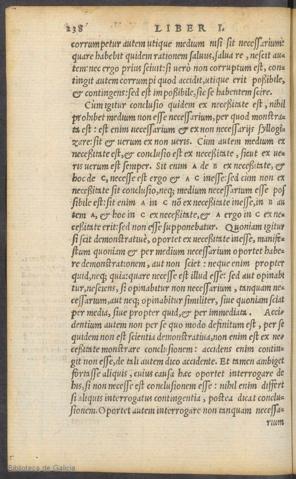 238 LIBER I.
corrumpetur autem utique medium nisi sit necessarium:
quare habebit quidem rationem saluus, salua re, nescit au
tem: nec ergo prius sciuit: si uerò non corruptum est, con
tingit autem corrumpi quod accidit, utique erit poßibile,
& contingens: sed est impoßibile, sic se habentem scire.
Cum igitur conclusio quidem ex neceßitate est, nihil
prohibet medium non esse necessarium, per quod monstra
ta est: est enim necessarium & ex non necessarijs syllogi
zare: sicut & uerum ex non ueris. Cum autem medium ex
neceßitate est, & conclusio est ex neceßitate, sicut ex ue
ris uerum est semper. Sit enim A de B ex neceßitate, &
hoc de C, necesse est ergo & A C inesse: sed cum non ex
neceßitate sit conclusio, neq; medium necessarium esse pos
sibile est: sit enim A in C ex nō ex neceßitate inesse, in B au
tem A, & hoc in C ex neceßitate, & A ergo in C ex ne-
ceßitate erit: sed non esse supponebatur. Quoniam igitur
si scit demonstratiuè, oportet ex neceßitate inesse, manife-
stum quoniam & per medium necessarium oportet habe-
re demonstrationem, aut non sciet: neque enim propter
quid, neq; quia: quare necesse est illud esse: sed aut opinabi
tur, nesciens, si opinabitur non necessarium, tanquam ne-
cessarium, aut neq; opinabitur similiter, siue quoniam sciat
per media, siue propter quid, & per immediata. Acci-
dentium autem non per se quo modo definitum est, per se
quidem non est scientia demonstratiua, non enim est ex ne-
ceßitate monstrare conclusionem: accidens enim contin-
git non esse, de tali autem dico accidente. Et tamen ambiget
fortasse aliquis, cuius causa hæc oportet interrogare de
his, si non necesse est conclusionem esse: nihil enim differt
si aliquis interrogatus contingentia, postea dicat conclu-
sionem. Oportet autem interrogare non tanquam necessa-
rium
Biblioteca de Galicia